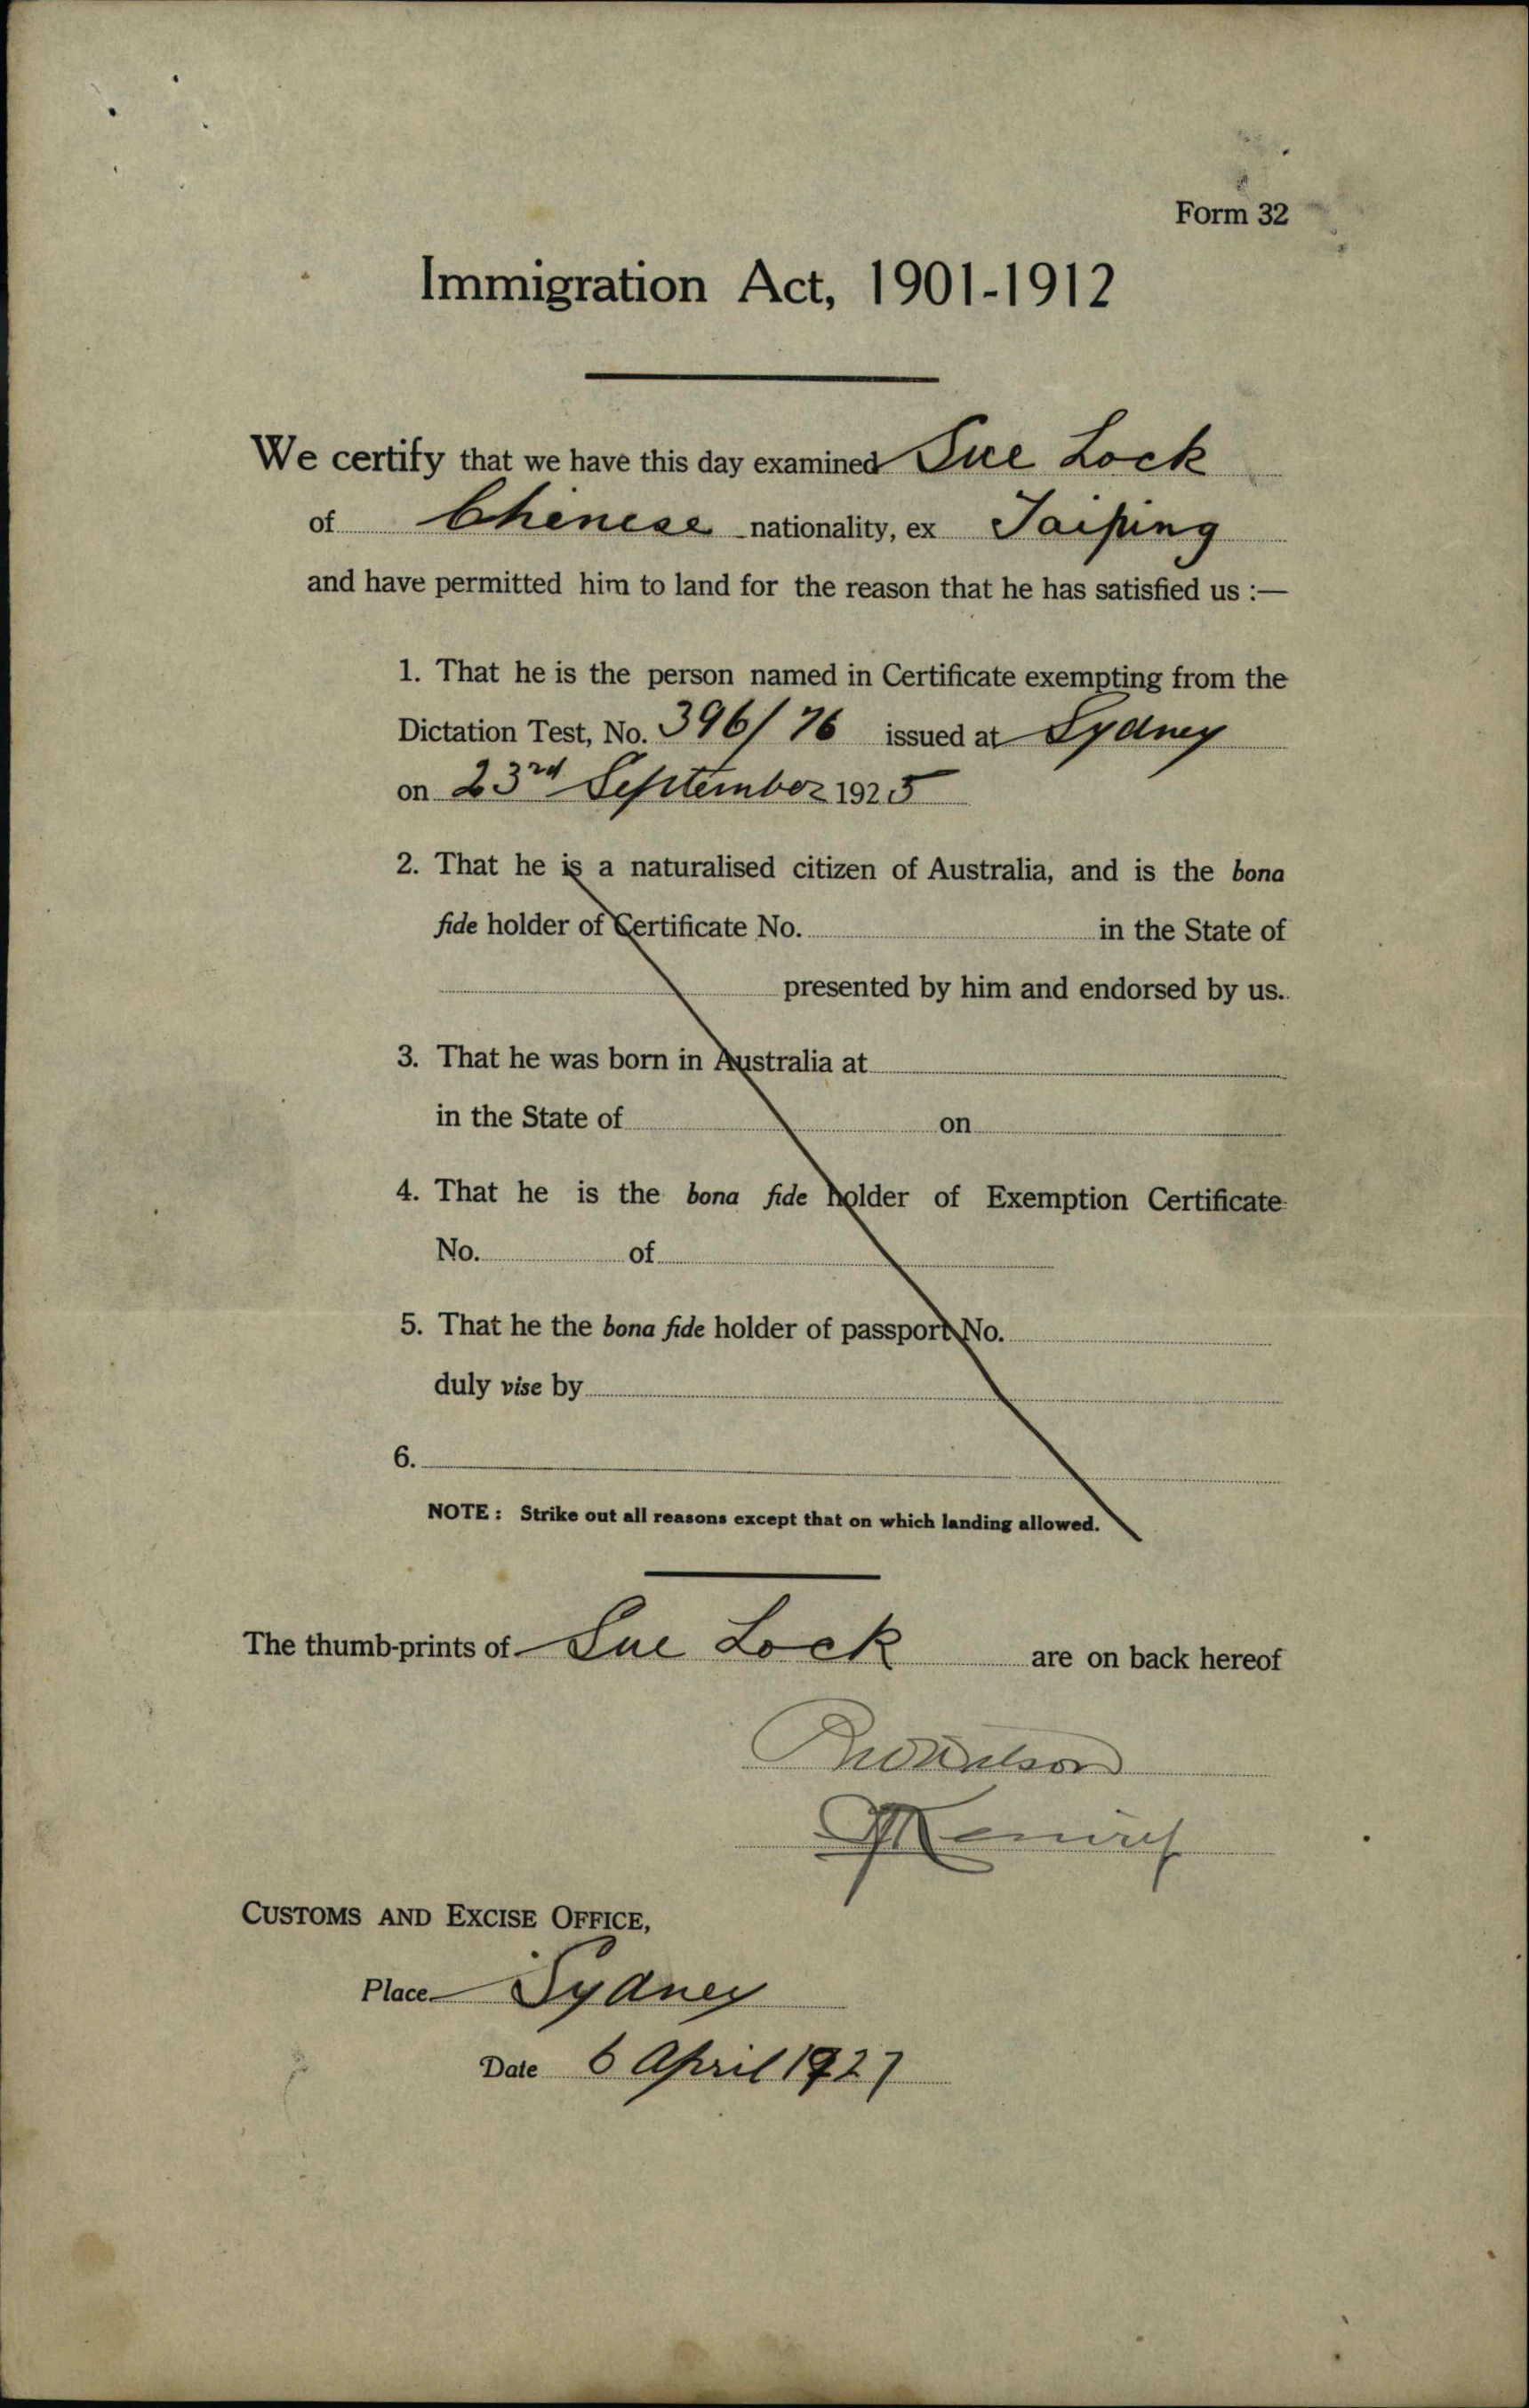 Form 32
Immigration Act, 1901-1912
We certify that we have this day examined Sue Lock
of Chinese nationality, ex Taiping
and have permitted him to land for the reason that he has satisfied us :—
1. That he is the person named in Certificate exempting from the
Dictation Test, No. 396/76 issued at Sydney
on 23rd September 1925
2. That he is a naturalised citizen of Australia, and is the bona
fide holder of Certificate No. in the State of
presented by him and endorsed by us.
3. That he was born in Australia at
in the State of on
4. That he is the bona fide holder of Exemption Certificate
No. of
5. That he the bona fide holder of passport No.
duly vise by
6.
NOTE : Strike out all reasons except that on which landing allowed.
The thumb-prints of Sue Lock are on back hereof
CUSTOMS AND EXCISE OFFICE,
Place Sydney
Date 6 April 1927